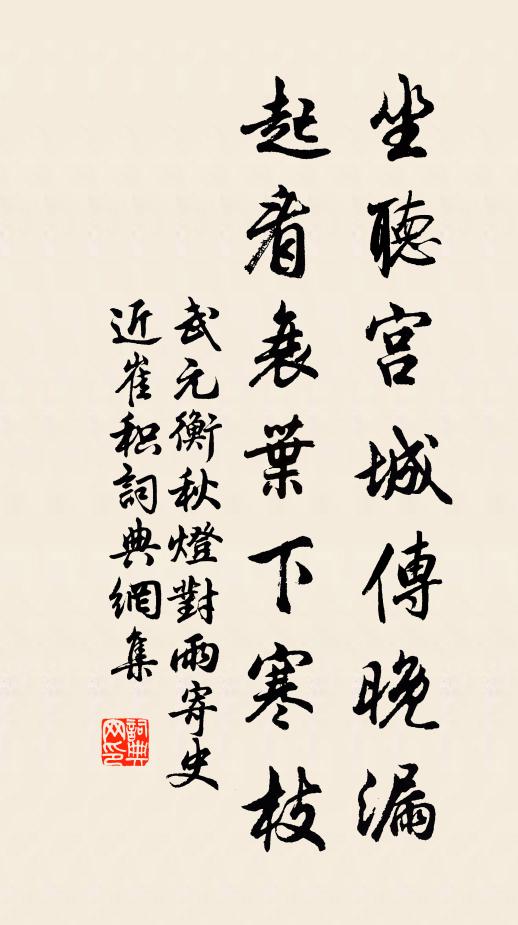 坐聽宮城傳晚漏
起看衰葉下寒枝
武元衡秋燈對雨寄史
近崔积詞典網集
詞典
网印